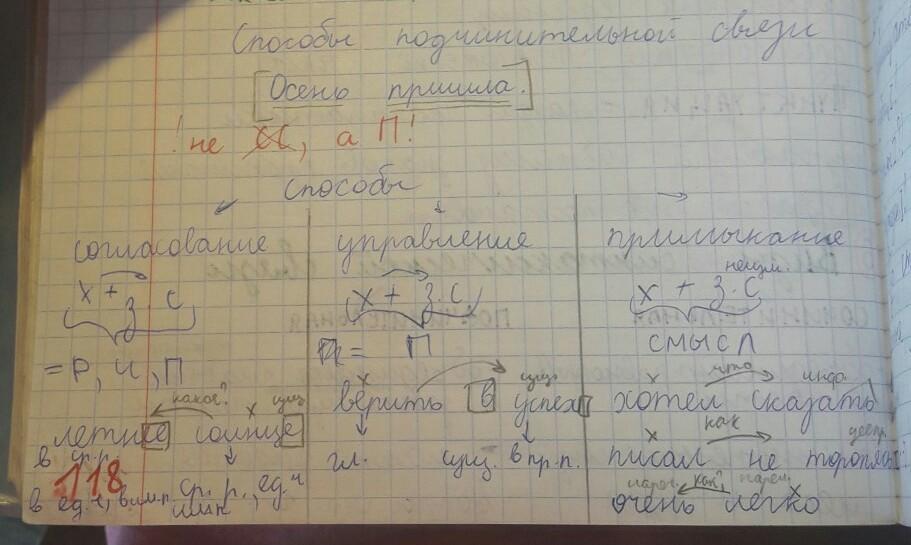 Способы подчинительной связи
[Осень пришла.]
! не СС, а П!
способы
согласование
х + з. с
= Р, Ч, П
какое? х сущ.
летнее солнце
в ср.р. ср. р., ед.ч
в ед.ч, в им.п. им.п.
118
управление
х + з. с.
= П
х сущ.
верить в успех
гл. сущ. в пр.п.
примыкание
неизм.
х + з. с
смысл
х что инф.
хотел сказать
х как деепр.
писал не торопясь
нареч. как? нареч. х
очень легко